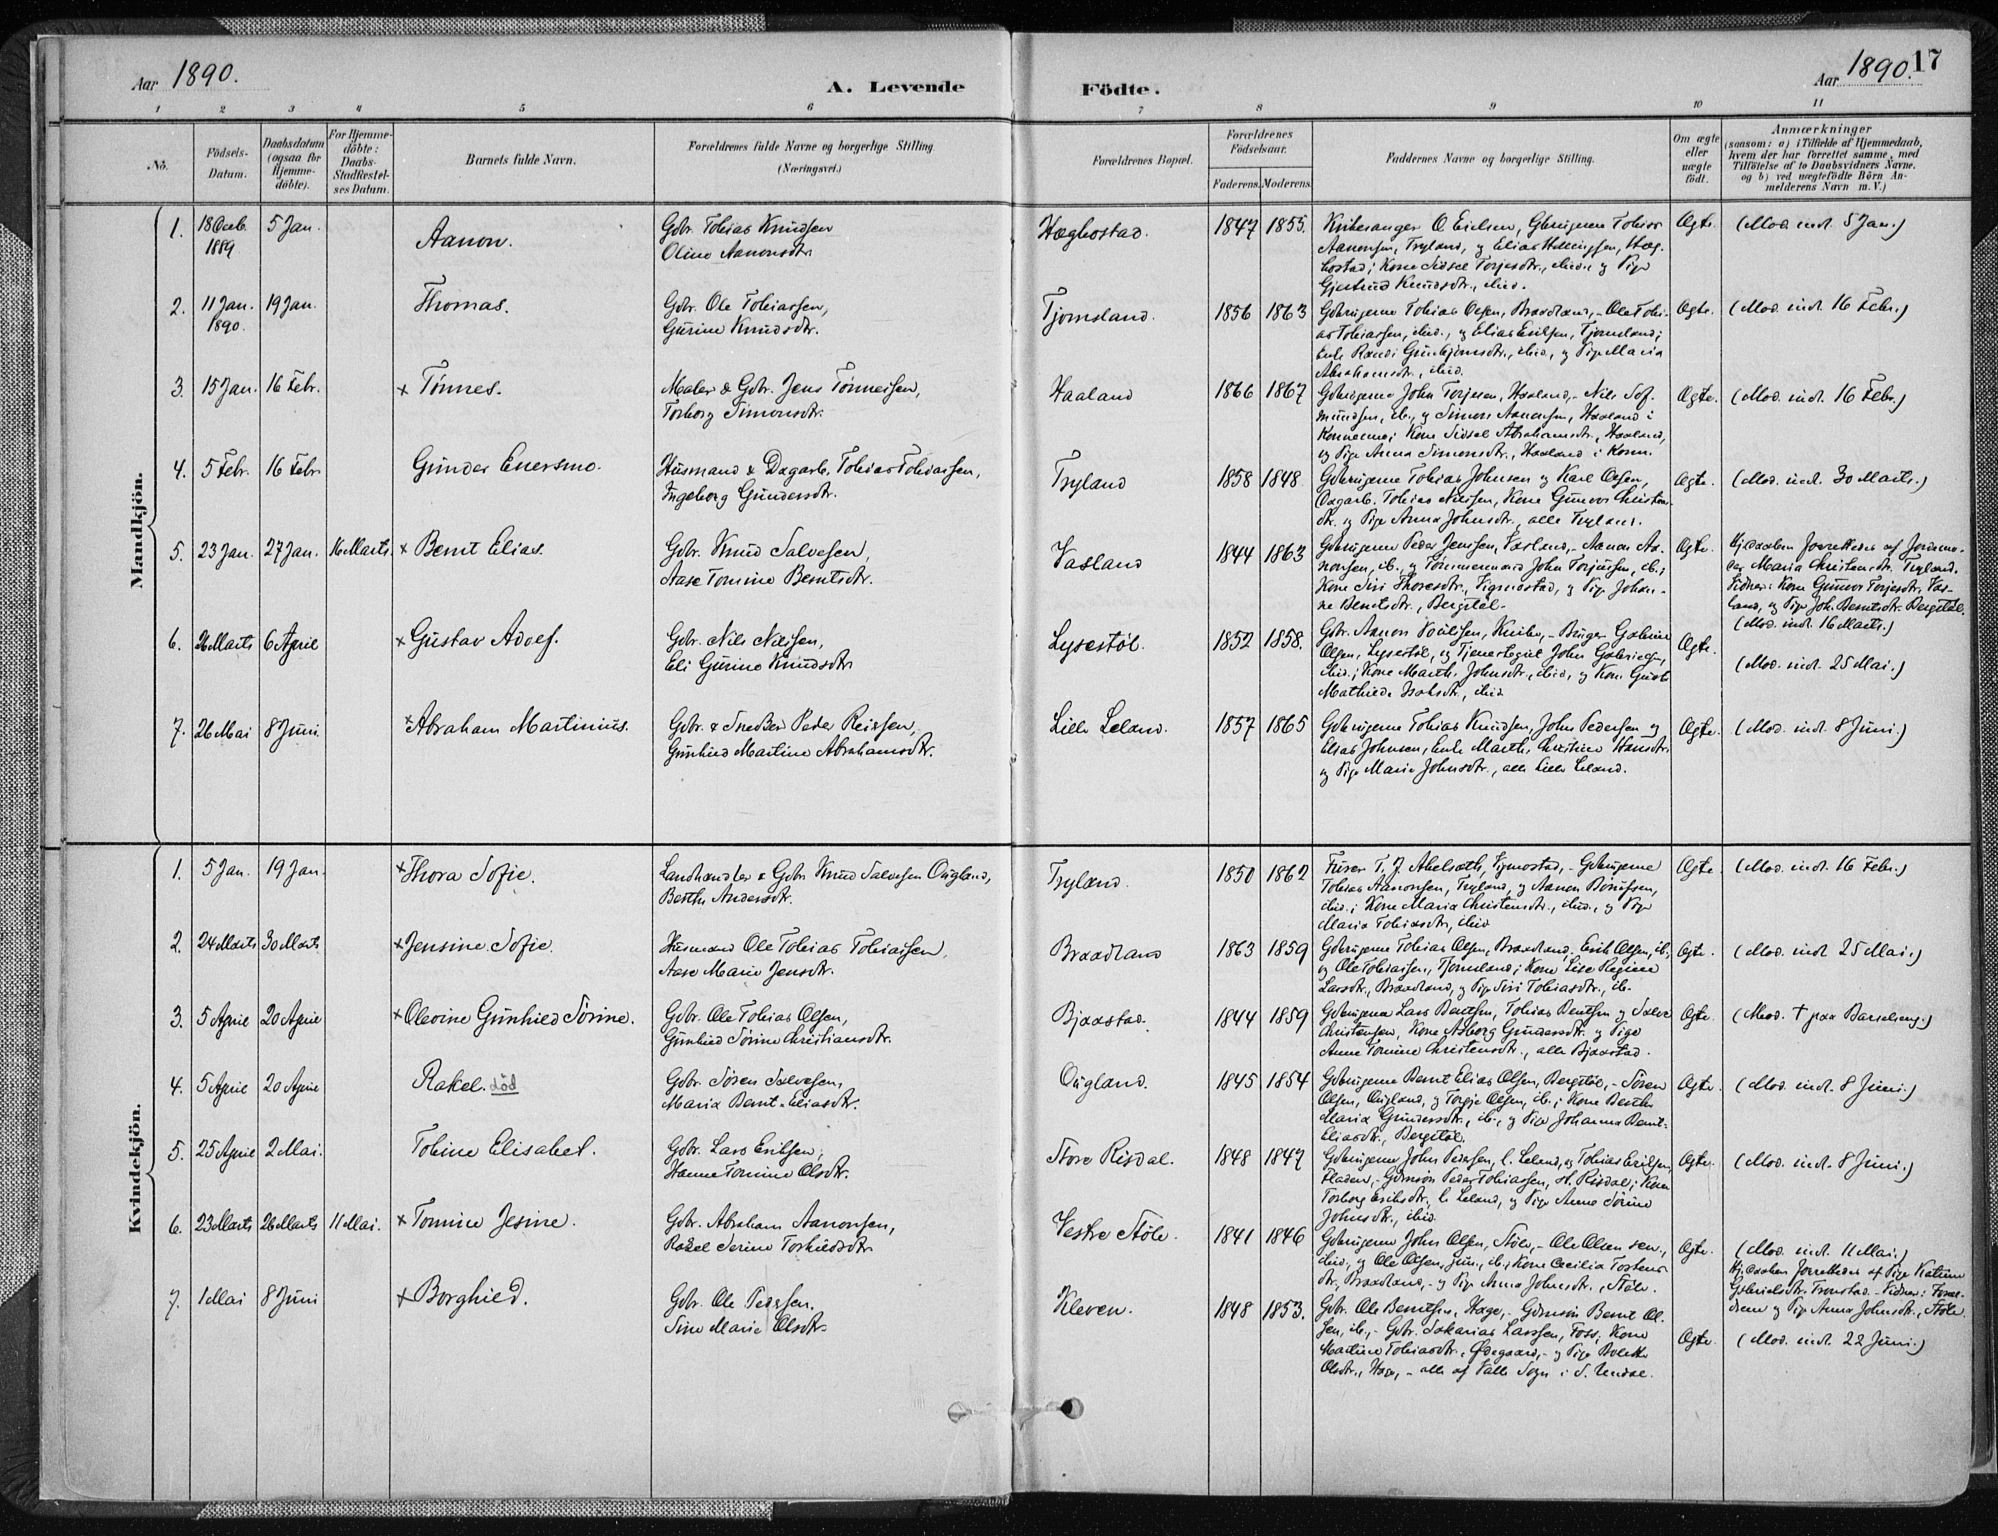 Aar 1890.
A. Levende Födte.
Aar 1890. 17
1 2 3 4 5 6 7 8 9 10 11
No.
Födsels-Datum.
Daabsdatum (ogsaa for Hjemme-döbte).
For Hjemme-döbte: Daabs-Stadfestel-ses Datum.
Barnets fulde Navn.
Forældrenes fulde Navne og borgerlige Stilling. (Næringsvei.)
Forældrenes Bopæl.
Forældrenes Födselsaar.
Faderens. Moderens.
Faddernes Navne og borgerlige Stilling.
Om ægte eller uægte födt.
Anmærkninger
(saasom: a) i Tilfælde af Hjemmedaab,
hvem der har forrettet samme, med
Tilföielse af to Daabsvidners Navne,
og b) ved uægtefödte Börn An-
melderens Navn m. V.)
Mandkjön.
1. 18 Decb. 1889 5 Jan. Aanon. Gbr. Tobias Knudsen Oline Aanonsdtr. Hægbostad. 1847 1855. Kirkesanger O Eielsen, Gbrugerne Tobias
Aanonsen, Tryland, og Elias Hellingsen, Hæg-
bostad; Kone Sidsel Torjesdtr., ibid. og Pige
Gjertrud Knudsdtr., ibid. Ægte. (Mod. indt. 5 Jan.)
2. 11 Jan. 1890. 19 Jan. Thomas. Gbr. Ole Tobiassen, Gurine Knudsdtr. Tjomsland. 1856 1863 Gbrugerne Tobias Olsen, Braadland, - Ole Tobi-
as Tobiassen, ibid., og Elias Erilsen, Tjomsland;
Enke Randi Gunbjørnsdtr., ibid., og Pige Maria
Abrahamsdtr., ibid. Ægte. (Mod. indt. 16 Febr.)
3 15 Jan. 16 Febr. × Tönnes. Maler & Gbr. Jens Tönnessen, Torborg Simonsdtr. Haaland 1866 1867 Gbrugerne John Torjesen, Haaland, - Nils Sof-
mundsen, ib., og Simon Aanensen, Haaland i
Konnesmo; Kone Sidsel Abrahamsdtr., Haaland,
og Pige Anna Simonsdtr., Haaland i Konn. Ægte. (Mod. indt. 16 Febr.)
4. 5 Febr. 16 Febr. Gunder Enersmo. Husmand & Dagarb. Tobias Tobiassen, Ingeborg Gundersdtr. Tryland 1858 1848 Gbrugerne Tobias Johnsen og Karl Olsen,
Dagarb. Tobias Nilsen, Kone Gunvor Christens-
dtr. og Pige Anna Johnsdtr., alle Tryland. Ægte. (Mod. indt. 30 Marts.)
5. 23 Jan. 27 Jan. 16 Marts. × Bernt Elias. Gbr. Knud Salvesen, Aase Tomine Berntsdtr. Vasland 1844 1863 Gbrugerne Peder Jensen, Vasland, - Aanon Aa-
nonsen, ib., og Tömmermand John Torjussen, ib.;
Kone Siri Thoresdtr., Vigmostad, og Pige Johan-
ne Berntsdtr., Bergstöl. Ægte. Hj.daaben forrettedes af Jordemo-
der Maria Christensdtr. Tryland.
Vidner: Kone Gunvor Torjesdtr, Vas-
land, og Pige Joh. Berntsdtr. Bergstöl.
(Mod. indt. 16 Marts.)
6. 26 Marts 6 April × Gustav Adolf. Gbr. Nils Nilsen, Eli Gurine Knudsdtr. Lysestöl. 1852 1858. Gbr. Aanon Nilsen, - Bruger Gabriel
Olsen, Lysestöl, og Tjener John Gabrielsen,
ibid.; Kone Marthe Johnsdtr., ibid., og Kone
Mathilde Isaksdtr., ibid. Ægte. (Mod. indt. 25 Mai.)
7. 26 Mai 8 Juni. × Abraham Martinius. Gbr. & Snedker Peder Reiersen, Gunhild Martine Abrahamsdtr. Lille Leland. 1857 1865 Gbrugerne Tobias Knudsen, John Pedersen og
Elias Johnsen, Enke Marthe Christine Hansdtr.
og Pige Maria Johnsdtr., alle Lille Leland. Ægte. (Mod. indt. 8 Juni.)
Kvindekjön.
1. 5 Jan. 19 Jan. × Thora Sofie. Landhandler & Gbr Knud Salvesen Ougland, Berthe Andersdtr. Tryland. 1850 1862 T. J. Abelsæth, Vigmostad, - Gbrugerne
Tobias Aanonsen, Tryland, og Aanen,
ibid.; Kone Maria Christensdtr., ibid., og Pige
Maria Tobiasdtr, ibid Ægte. (Mod. indt. 16 Febr.)
2. 24 Marts 30 Marts × Jensine Sofie. Husmand Ole Tobias Tobiassen, Aase Marie Jensdtr. Braadland 1863 1859 Gbrugerne Tobias Olsen, Braadland, Erik Olsen, ib.,
og Ole Tobiassen, Tjomsland; Kone Lise Regine
Larsdtr., Braadland, og Pige Siri Tobiasdtr., ib. Ægte. (Mod. indt 25 Mai.)
3. 5 April 20 April × Olevine Gunhild Sörine. Gbr. Ole Tobias Olsen, Gunhild Sörine Christiansdtr. Bjaastad. 1844 1859 Gbrugerne Lars Berntsen, Tobias Berntsen og Salve
Christensen, Kone Asborg Gundersdtr. og Pige
Anne Tomine Christensdtr., alle Bjaastad. Ægte. (Mod. † paa Barselseng.)
4. 5 April 20 April Rakel. död Gbr. Sören Salvesen, Maria Bernt-Eliasdtr. Ougland. 1845 1854 Gbrugerne Bernt Elias Olsen, Bergstöl, - Sören
Olsen, Ougland, og Torje Olsen, ib.; Kone Berthe
Maria Gundersdtr., ib., og Pige Johanna Bernt-
Eliasdtr., Bergstöl. Ægte. (Mod. indt. 8 Juni.)
5. 25 April 2 Mai. Tobine Elisabet. Gbr. Lars Eriksen, Hanne Tomine Olsdtr. Store Risdal. 1848 1847 Gbrugerne John Pedersen, l. Leland, og Tobias Eriksen,
Fladen, - Gbrsøn Peder Tobiassen, st. Risdal; Kone
Torborg Eriksdtr., l. Leland, og Pige Anna Sörine
Johnsdtr., ibid. Ægte. (Mod. indt. 8 Juni.)
6. 23 Marts 26 Marts 11 Mai. × Tomine Jesine. Gbr. Abraham Aanonsen, Rakel Serine Torkildsdtr Vestre Stöle. 1841 1846 Gbrugerne John Olsen, Stöle, - Ole Olsen sen.,
ibid., og Ole Olsen, jun., ib.; Kone Cecilia Torkens-
dtr, Braadland, - og Pige Anna Johnsdtr., Stöle. Ægte. (Mod. indt. 11 Mai.)
Hj.daaben forrettedes af Pige Katrine
Gabrielsdtr. Tronstad. - Vidner: Foræl-
drene og Pige Anna Johnsdtr., Stöle.
7. 1 Mai 8 Juni × Borghild. Gbr. Ole Pedersen, Sine Marie Olsdtr. Kleven. 1848 1853. Gbr. Ole Berntsen, Hage, - Gbrsøn Bernt Ol-
sen, ib., - Gbr. Sakarias Larssen, Foss, Kone
Martine Tobiasdtr., Ödegaard, - og Pige Bolette
Olsdtr., Hage, - alle af Valle Sogn i S. Undal. Ægte. (Mod. indt. 22 Juni.)